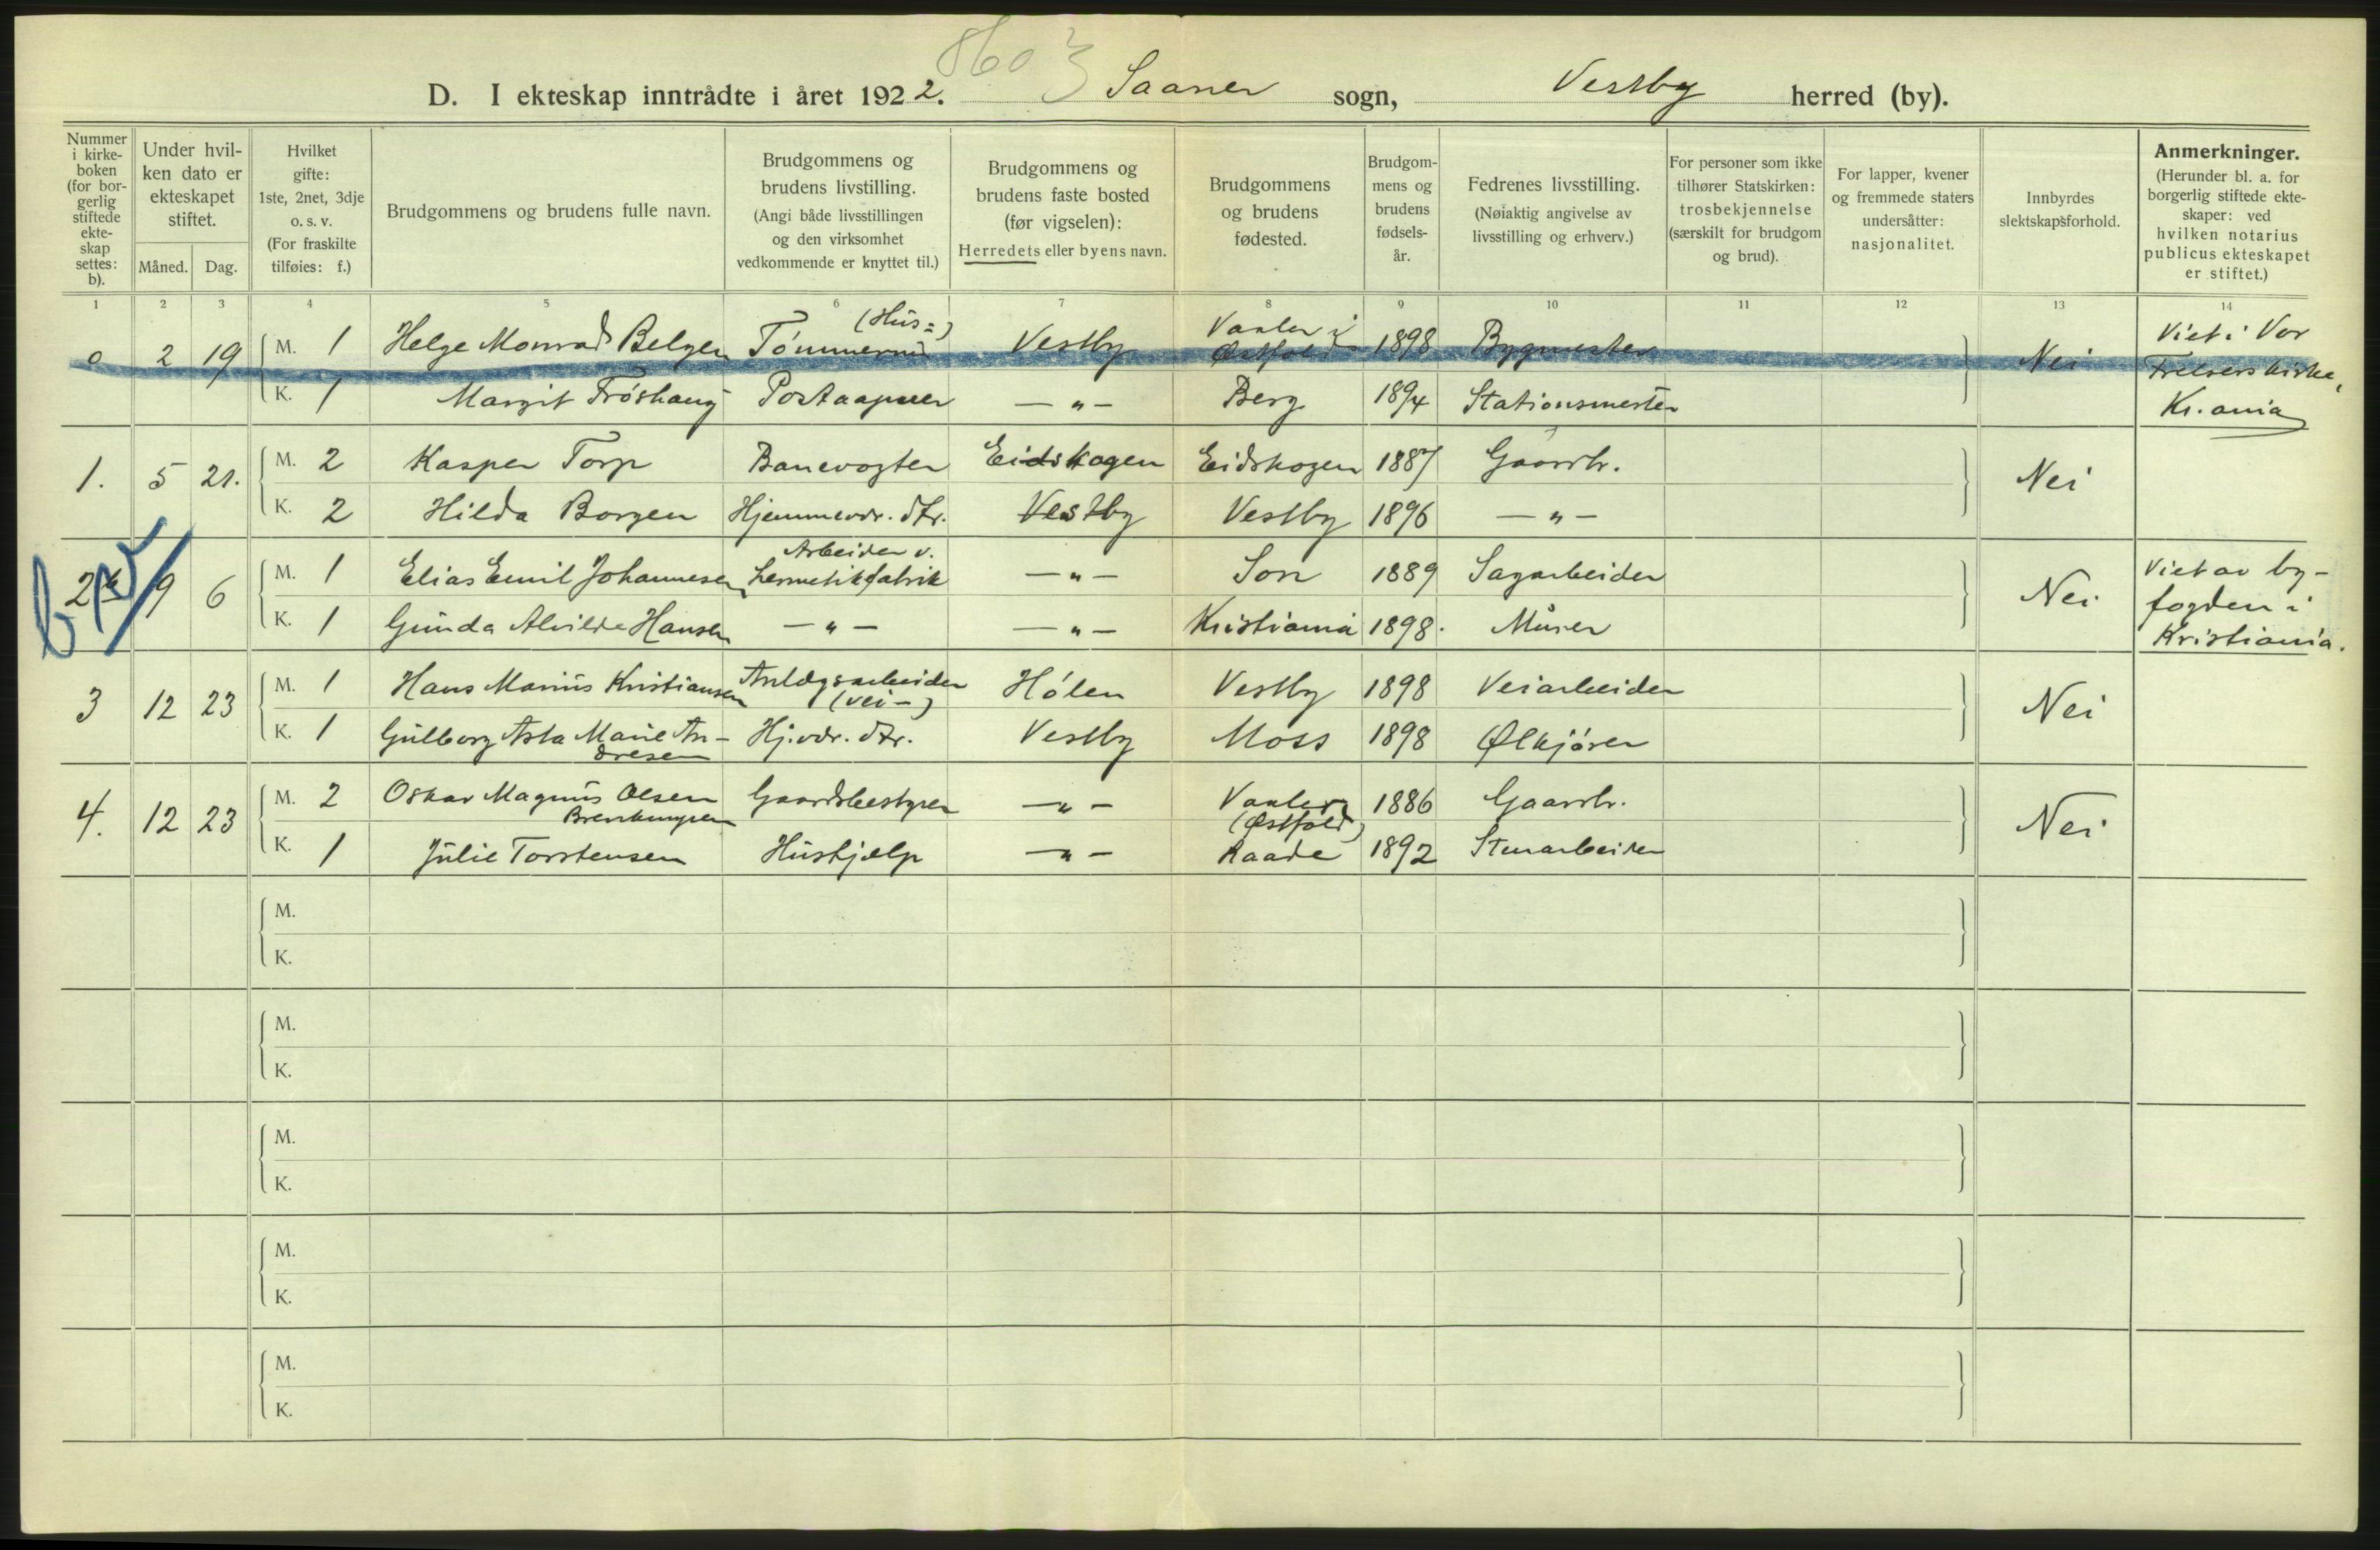 8603
D. I ekteskap inntrådte i året 1922. Saaner sogn, Vestby herred (by).
Nummer i kirke-boken (for bor-gerlig stiftede ekte-skap settes: b).
Under hvil-ken dato er ekteskapet stiftet.
Måned. Dag.
Hvilket gifte: 1ste, 2net, 3dje o. s. v. (For fraskilte tilføies: f.)
Brudgommens og brudens fulle navn.
Brudgommens og brudens livstilling. (Angi både livsstillingen og den virksomhet vedkommende er knyttet til.)
Brudgommens og brudens faste bosted (før vigselen): Herredets eller byens navn.
Brudgommens og brudens fødested.
Brudgom-mens og brudens fødsels-år.
Fedrenes livsstilling. (Nøiaktig angivelse av livsstilling og erhverv.)
For personer som ikke tilhører Statskirken: trosbekjennelse (særskilt for brudgom og brud).
For lapper, kvener og fremmede staters undersåtter: nasjonalitet.
Innbyrdes slektskapsforhold.
Anmerkninger. (Herunder bl. a. for borgerlig stiftede ekte-skaper: ved hvilken notarius publicus ekteskapet er stiftet.)
1 2 3 4 5 6 7 8 9 10 11 12 13 14
0 2 19 M. 1 Helge Monrad Belgen (Hus=) Tömmermd Vestby Vaaler i Østfold 1898 Bygmester Nei Viet i Vor Frelsers kirke,
K. 1 Margit Fröshaug Postaapner — " — Berg 1894 Stationsmester Kr.ania
1. 5 21. M. 2 Kasper Torp Banevogter Eidskogen Eidskogen 1887 Gaardbr. Nei
K. 2 Hilda Borgen Hjemmevær. dtr. Vestby Vestby 1896 — " —
2 b 9 6 M. 1 Elias Emil Johannesen Arbeider v. hermetikfabrik — " — Son 1889 Sagarbeider Nei Viet av by-
fogden i
K. 1 Gunda Alvilde Hansen — " — — " — Kristiania 1898. Murer Kristiania.
3 12 23 M. 1 Hans Marius Kristiansen Anlægsarbeider (vei-) Hölen Vestby 1898 Veiarbeider Nei
K. 1 Gulborg Asta Marie An-dresen Hj.vær. dtr. Vestby Moss 1898 Ølkjörer
4. 12 23 M. 2 Oskar Magnus Olsen Gaardsbestyrer — " — Vaaler (Østfold) 1886 Gaardbr. Nei
K. 1 Julie Torstensen Hushjælp — " — Raade 1892 Stenarbeider
M.
K.
M.
K.
M.
K.
M.
K.
M.
K.